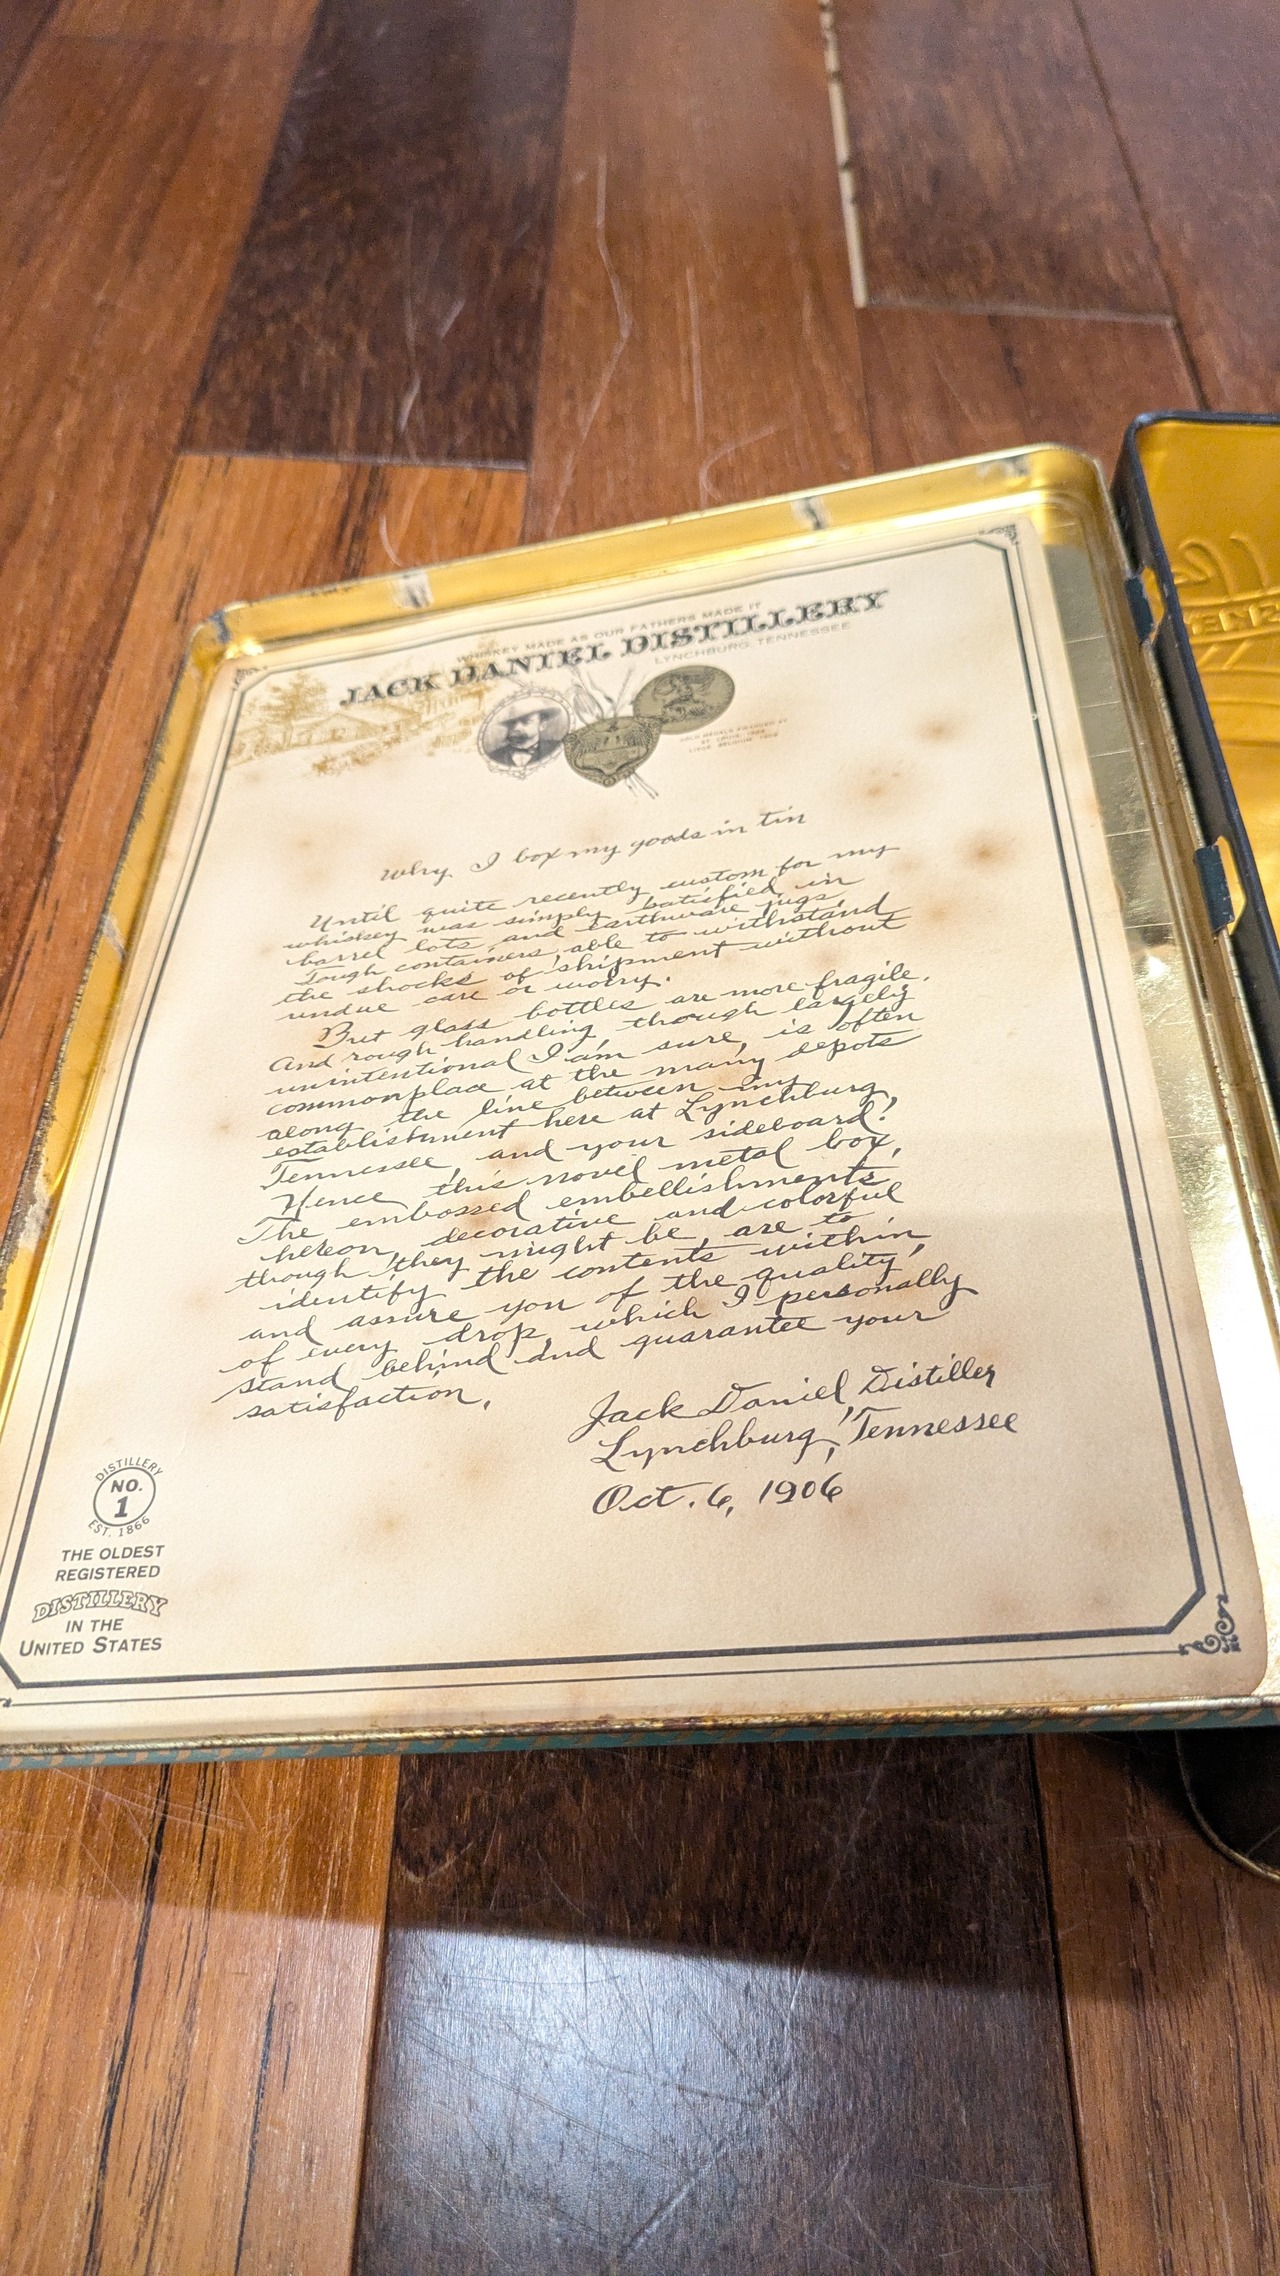 WHISKEY MADE AS OUR FATHERS MADE IT
JACK DANIEL DISTILLERY
LYNCHBURG, TENNESSEE
GOLD MEDALS AWARDED AT
ST. LOUIS, 1904
LIEGE, BELGIUM, 1905
Why I box my goods in tin
Until quite recently custom for my
whiskey was simply satisfied in
barrel lots and earthware jugs,
Tough containers, able to withstand
the shocks of shipment without
undue care or worry.
But glass bottles are more fragile.
And rough handling, though largely
unintentional I am sure, is often
commonplace at the many depots
along the line between my
establishment here at Lynchburg,
Tennessee, and your sideboard!
Hence this novel metal box,
The embossed embellishments
hereon, decorative and colorful
though they might be, are to
identify the contents within
and assure you of the quality,
of every drop, which I personally
stand behind and guarantee your
satisfaction.
Jack Daniel Distiller
Lynchburg, Tennessee
Oct. 6, 1906
DISTILLERY
NO.
1
EST. 1866
THE OLDEST
REGISTERED
DISTILLERY
IN THE
UNITED STATES